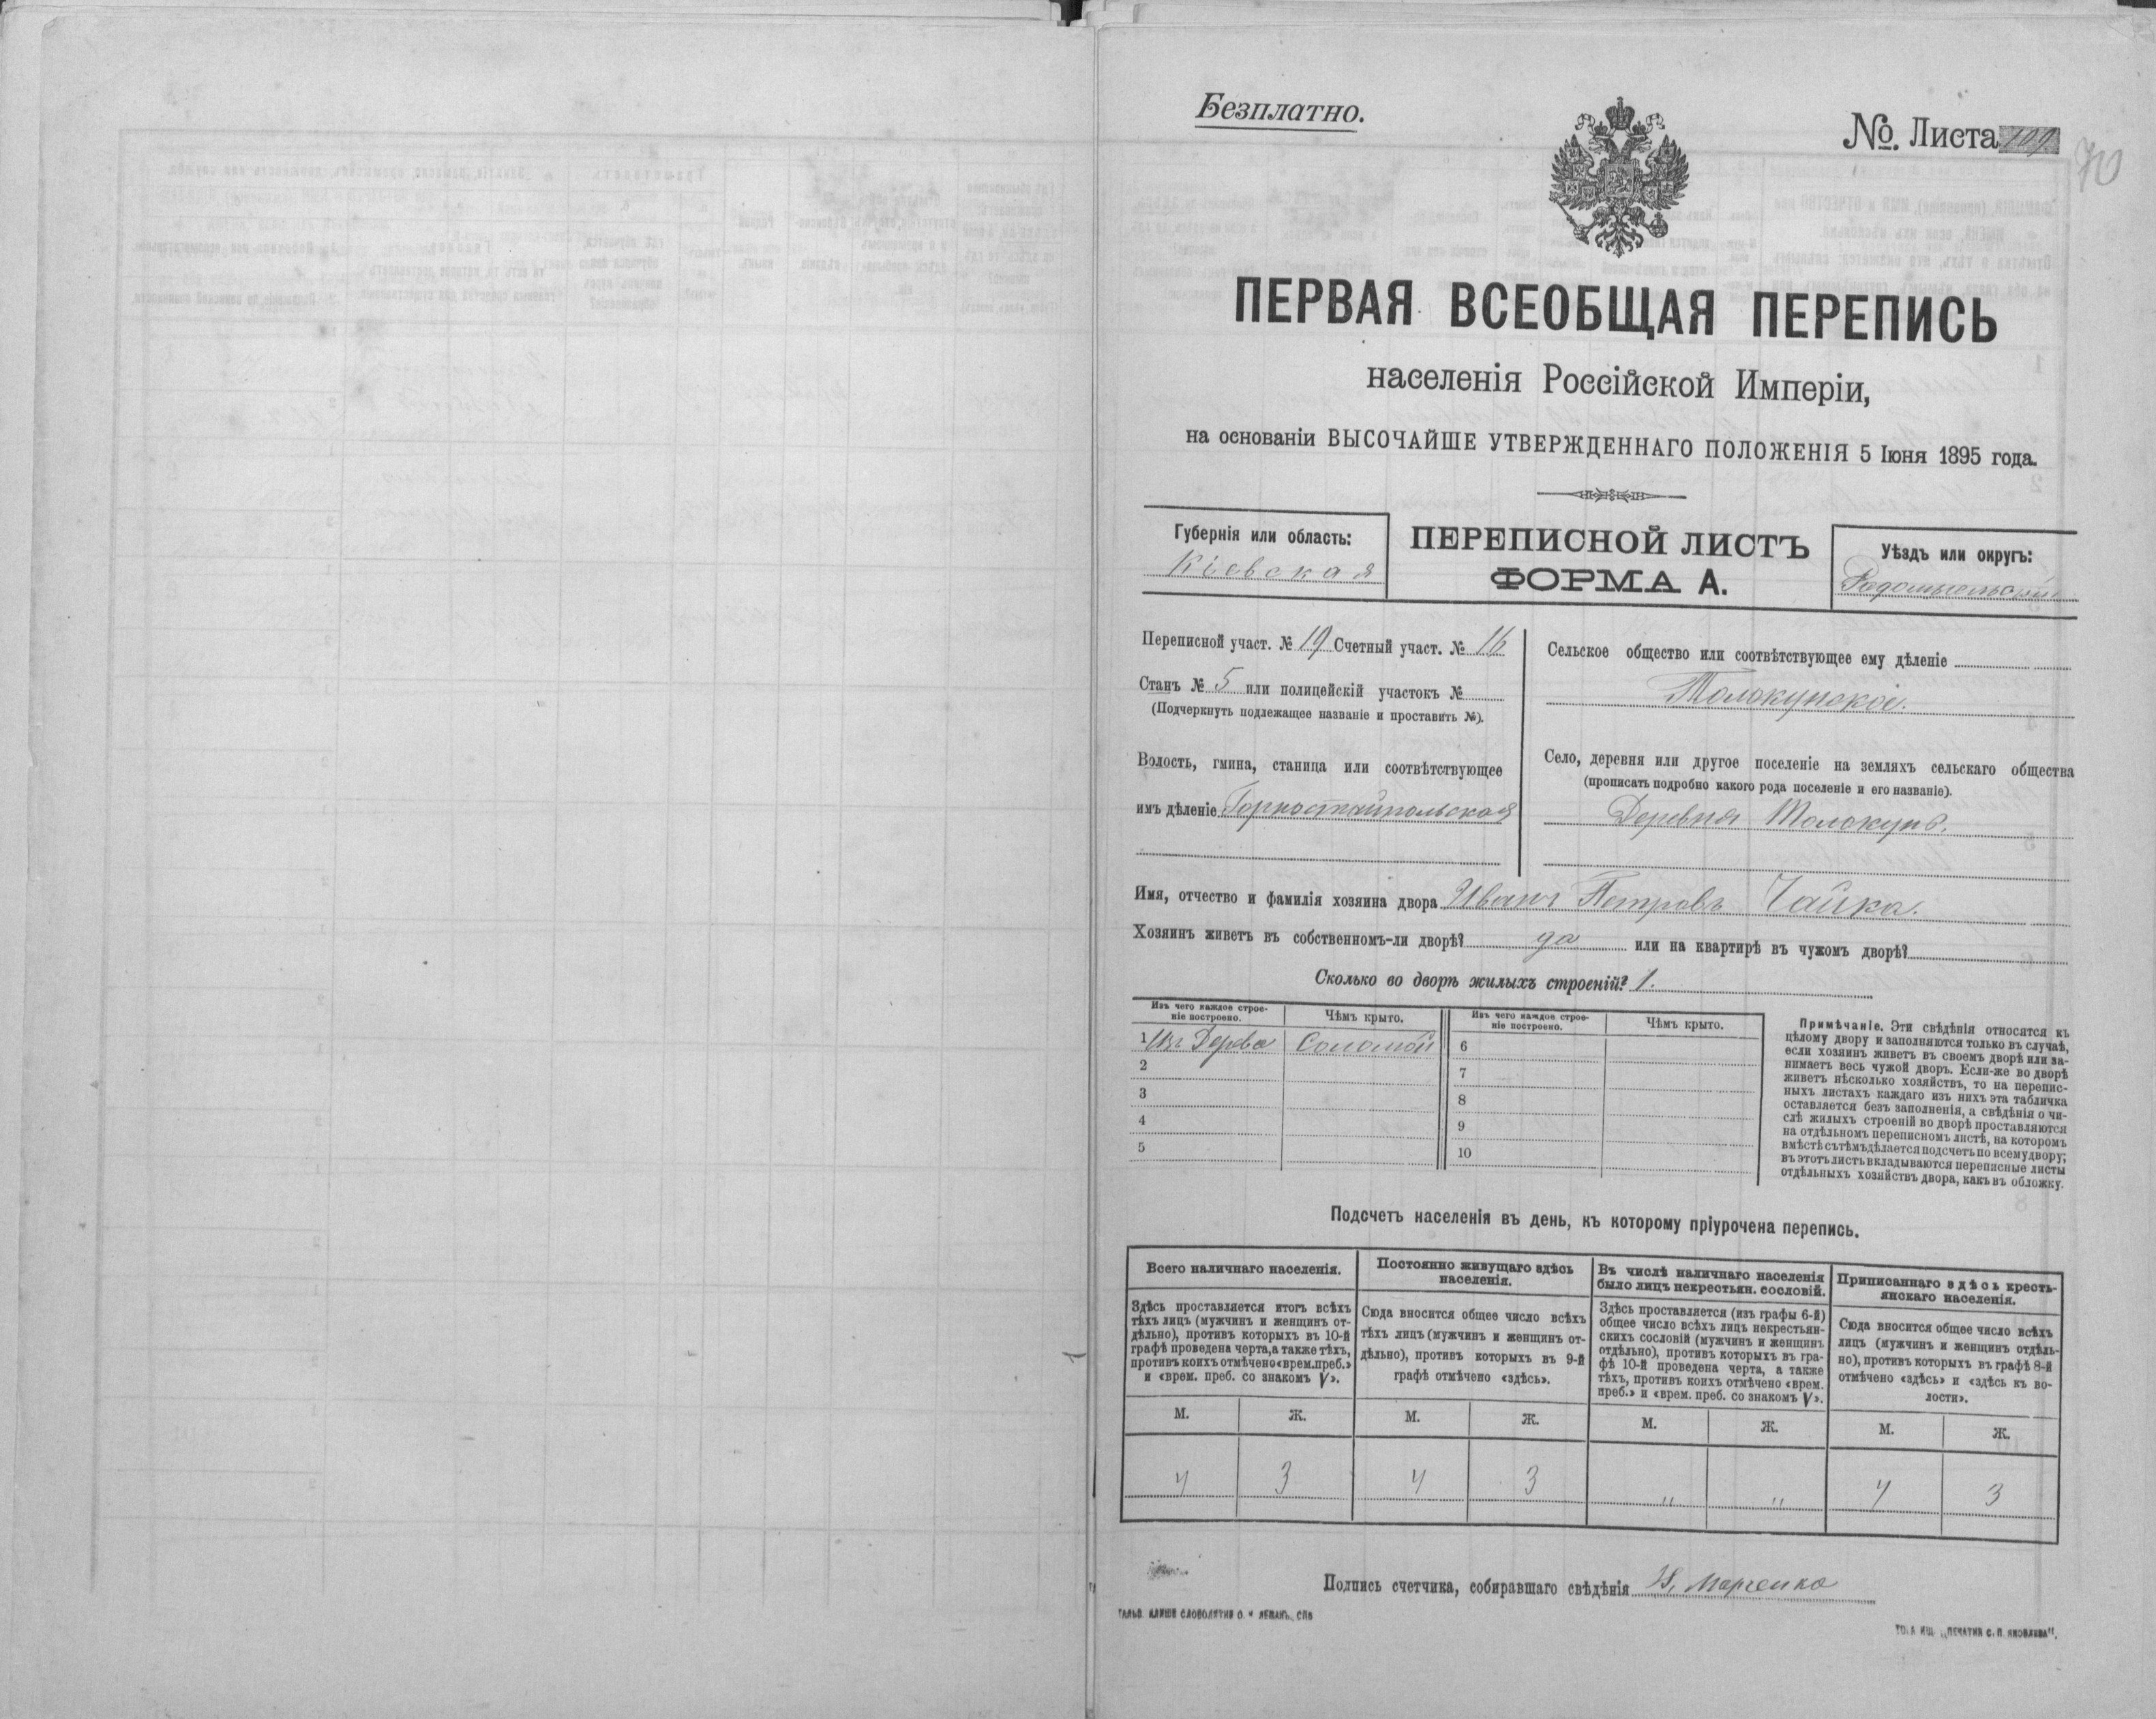 Безплатно.
№. Листа 109
70
ПЕРВАЯ ВСЕОБЩАЯ ПЕРЕПИСЬ
населенія Россійской Имперіи,
на основаніи ВЫСОЧАЙШЕ УТВЕРЖДЕННАГО ПОЛОЖЕНІЯ 5 Іюня 1895 года.
Губернія или область:
Кіевская
ПЕРЕПИСНОЙ ЛИСТЪ
ФОРМА А.
Уѣздъ или округъ:
Радомысльскій
Переписной участ. № 19 Счетный участ. № 16
Станъ № 5 или полицейскій участокъ №
(Подчеркнуть подлежащее названіе и проставить №).
Волость, гмина, станица или соотвѣтствующее
имъ дѣленіе Горностайпольская
Сельское общество или соотвѣтствующее ему дѣленіе
Толокунское.
Село, деревня или другое поселеніе на земляхъ сельскаго общества
(прописать подробно какого рода поселеніе и его названіе).
Деревня Толокунь.
Имя, отчество и фамилія хозяина двора Иванъ Петровъ Чайка.
Хозяинъ живетъ въ собственномъ-ли дворѣ? да или на квартирѣ въ чужомъ дворѣ?
Сколько во дворѣ жилыхъ строеній? 1.
Изъ чего каждое строе-
ніе построено.
Чѣмъ крыто.
Изъ чего каждое строе-
ніе построено.
Чѣмъ крыто.
1 Изъ Дерева Соломой 6
2 7
3 8
4 9
5 10
Примѣчаніе. Эти свѣдѣнія относятся къ
цѣлому двору и заполняются только въ случаѣ,
если хозяинъ живетъ въ своемъ дворѣ или за-
нимаетъ весь чужой дворъ. Если-же во дворѣ
живетъ нѣсколько хозяйствъ, то на перепис-
ныхъ листахъ каждаго изъ нихъ эта табличка
оставляется безъ заполненія, а свѣдѣнія о чи-
слѣ жилыхъ строеній во дворѣ проставляются
на отдѣльномъ переписномъ листѣ, на которомъ
вмѣстѣ съ тѣмъ дѣлается подсчетъ по всему двору;
въ этотъ листъ вкладываются переписные листы
отдѣльныхъ хозяйствъ двора, какъ въ обложку.
Подсчетъ населенія въ день, къ которому пріурочена перепись.
Всего наличнаго населенія.
Здѣсь проставляется итогъ всѣхъ
тѣхъ лицъ (мужчинъ и женщинъ от-
дѣльно), противъ которыхъ въ 10-й
графѣ проведена черта, а также тѣхъ,
противъ коихъ отмѣчено «врем. преб.»
и «врем. преб. со знакомъ V».
Постоянно живущаго здѣсь
населенія.
Сюда вносится общее число всѣхъ
тѣхъ лицъ (мужчинъ и женщинъ от-
дѣльно), противъ которыхъ въ 9-й
графѣ отмѣчено «здѣсь».
Въ числѣ наличнаго населенія
было лицъ некрестьян. сословій.
Здѣсь проставляется (изъ графы 6-й)
общее число всѣхъ лицъ некрестьян-
скихъ сословій (мужчинъ и женщинъ
отдѣльно), противъ которыхъ въ гра-
фѣ 10-й проведена черта, а также
тѣхъ, противъ коихъ отмѣчено «врем.
преб.» и «врем. преб. со знакомъ V».
Приписаннаго здѣсь кресть-
янскаго населенія.
Сюда вносится общее число всѣхъ
лицъ (мужчинъ и женщинъ отдѣль-
но), противъ которыхъ въ графѣ 8-й
отмѣчено «здѣсь» и «здѣсь къ во-
лости».
М. Ж. М. Ж. М. Ж. М. Ж.
4 3 4 3 „ „ 4 3
Подпись счетчика, собиравшаго свѣдѣнія Н. Марченко